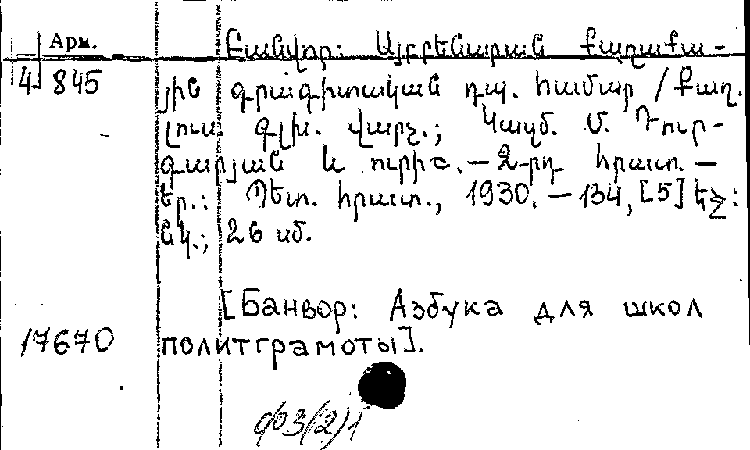 Арм.
4 845
Բանվոր: Այբբենարան քաղաքա-
յին գրագիտական դպ. համար / Քաղ.
լուս. գլխ. վարչ.; Կազմ. Մ. Դուր-
գարյան և ուրիշ. — 2-րդ հրատ. —
Եր.: Պետ. հրատ., 1930. — 134, [5] էջ:
նկ.; 26 սմ.
[Банвор: Азбука для школ
17670 политграмоты].
ф03(2)1